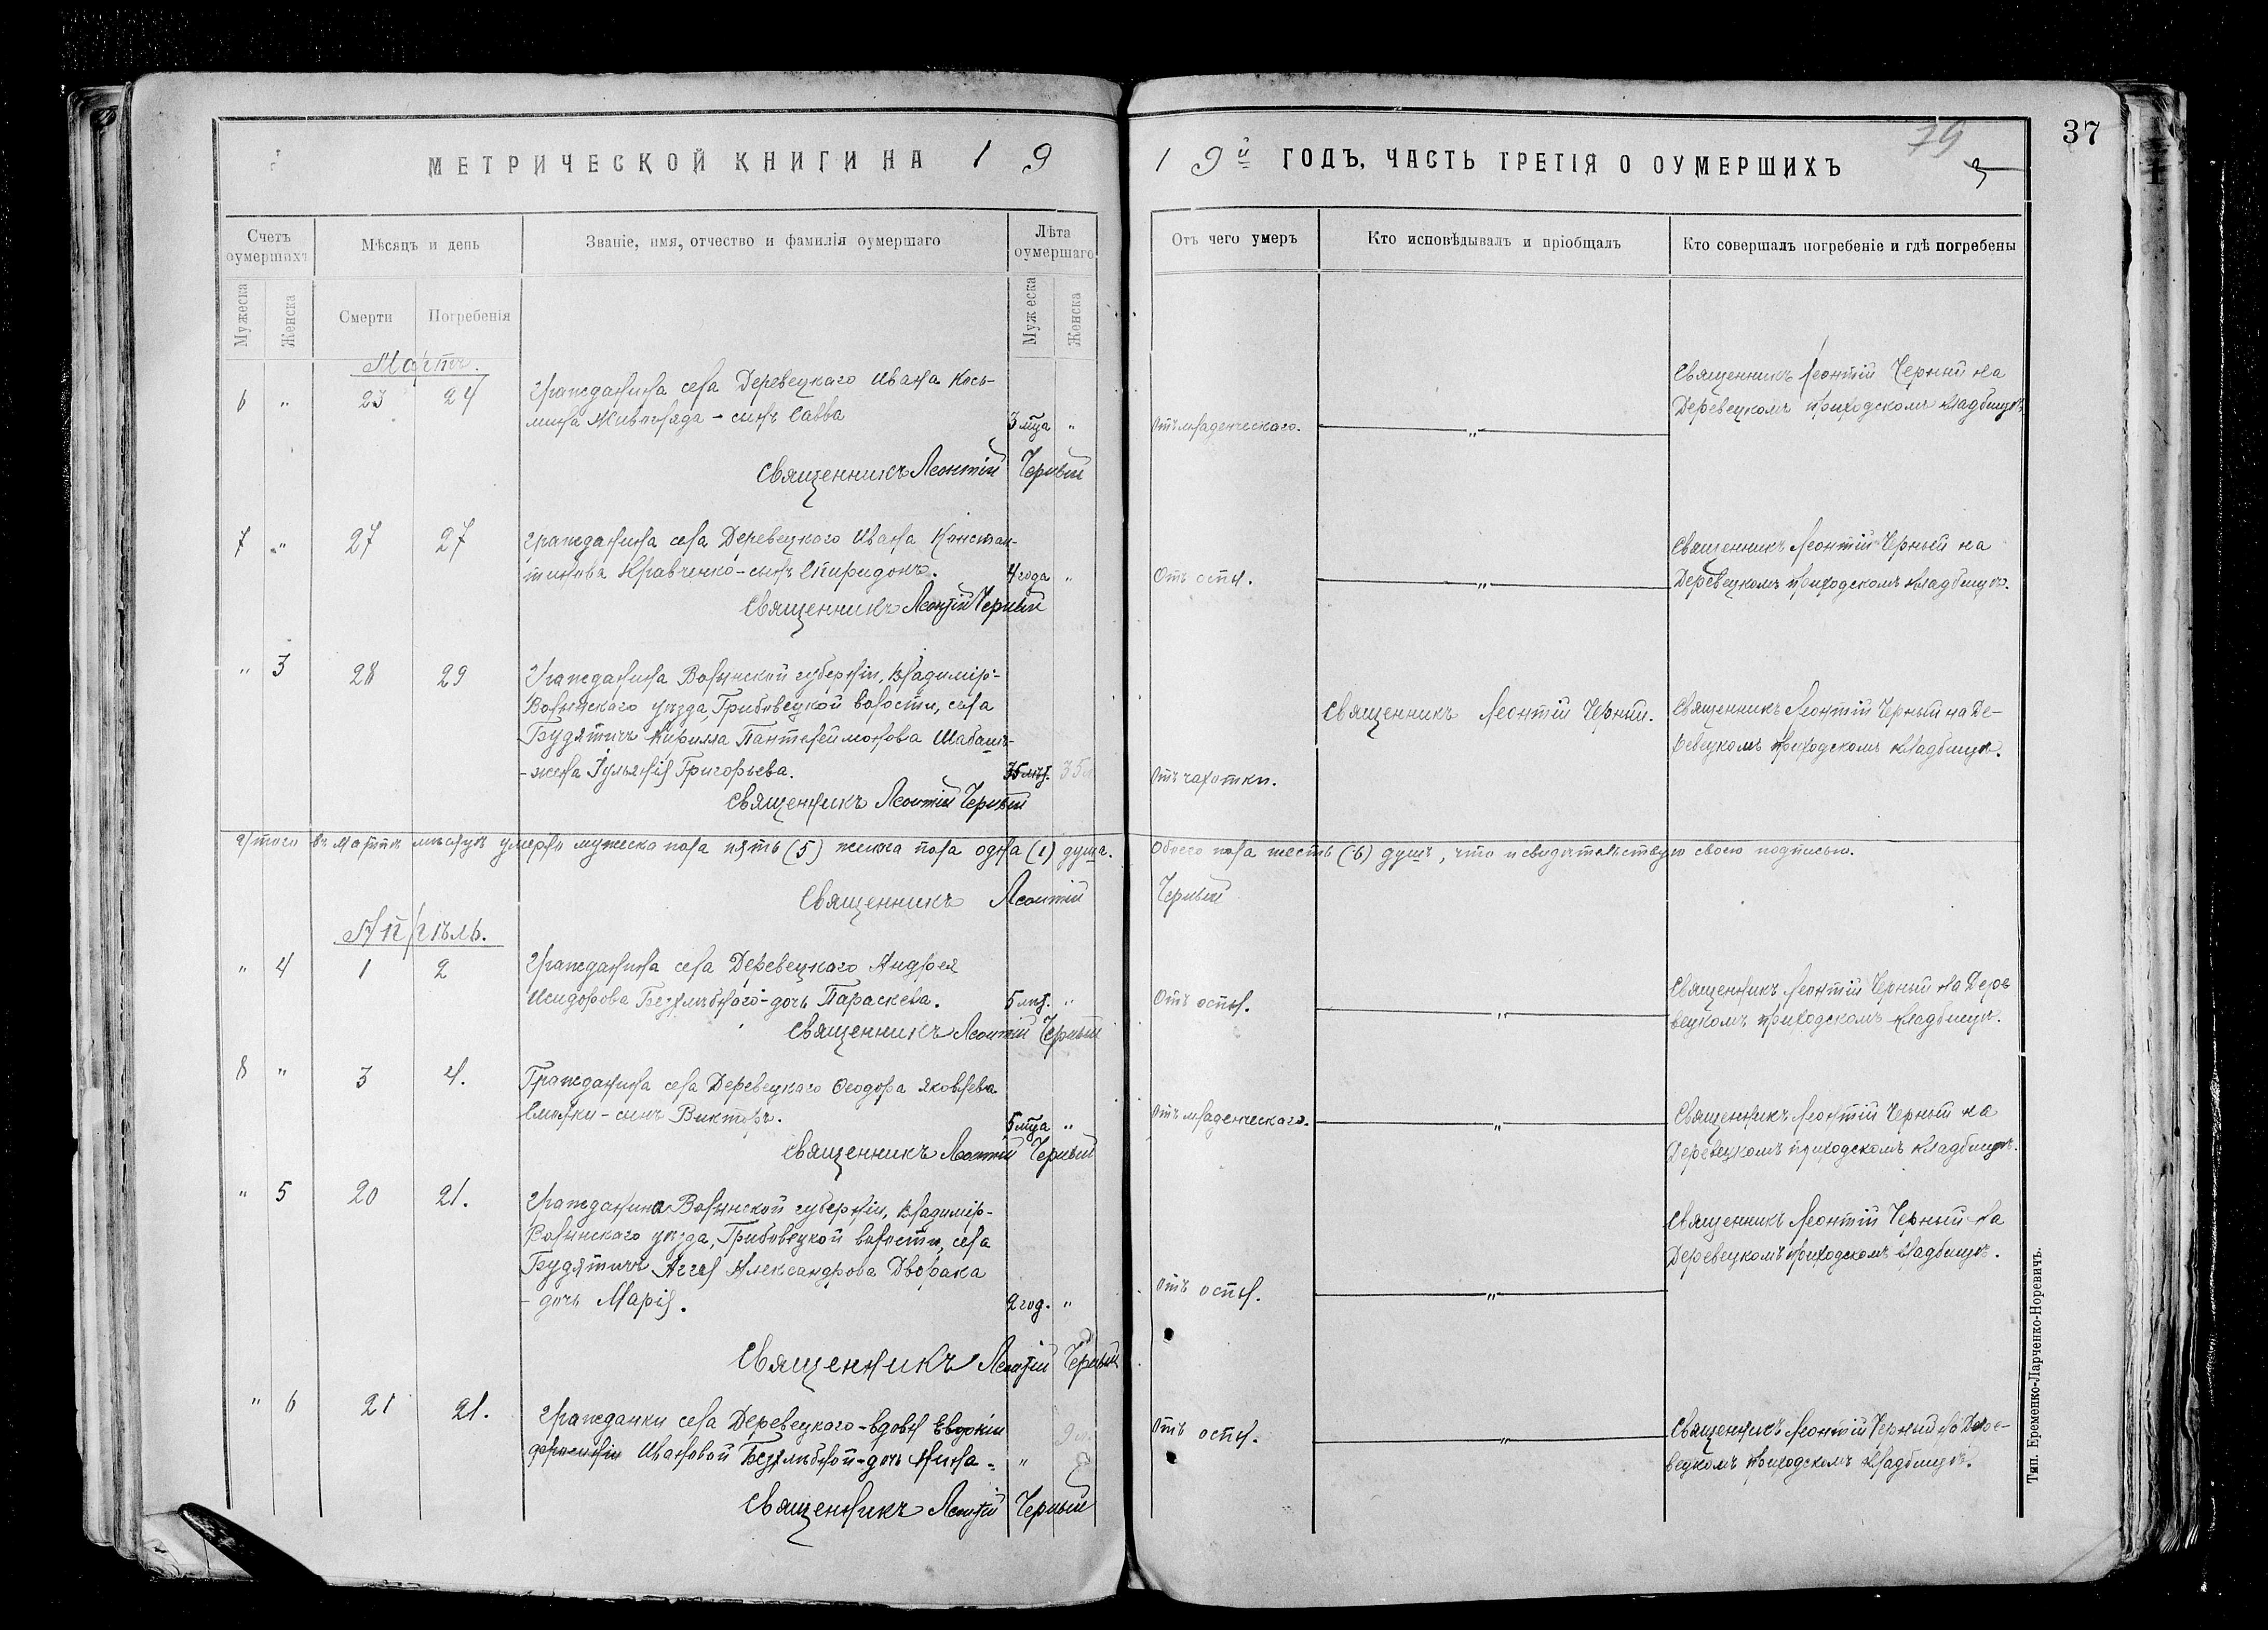 МЕТРИЧЕСКОЙ КНИГИ НА 19
19й ГОДЪ, ЧАСТЬ ТРЕТІЯ О ОУМЕРШИХЪ
79
37
Счетъ оумершихъ
Мѣсяцъ и день
Званіе, имя, отчество и фамилія оумершаго
Лѣта оумершаго
Отъ чего умеръ
Кто исповѣдывалъ и пріобщалъ
Кто совершалъ погребеніе и гдѣ погребены
Мужеска
Женска
Смерти
Погребенія
Мужеска
Женска
Мартъ.
6 " 23 24 Гражданина села Деревецкаго Ивана Кось-
мина Живогляда - сынъ Савва 3 мца "
Отъ младенческаго. "
Священникъ Леонтій Черный на
Деревецкомъ приходскомъ кладбищѣ
Священникъ Леонтій Черный
7 " 27 27 Гражданина села Деревецкого Ивана Констан-
тинова Кравченко - сынъ Спиридонъ. 4 года "
Отъ оспы. "
Священникъ Леонтій Черный на
Деревецкомъ приходскомъ кладбищѣ.
Священникъ Леонтій Черный
" 3 28 29 Гражданина Волынской губерніи, Владиміръ-
Волынскаго уѣзда, Грибовецкой волости, села
Будятичъ Кирилла Пантелеймонова Шабашъ-
- жена Іуліанія Григорьева. 35 лѣт. 35 л
Отъ чахотки.
Священникъ Леонтій Черный.
Священникъ Леонтій Черный на Де-
ревецкомъ приходскомъ кладбищѣ.
Священникъ Леонтій Черный
Итого въ Мартѣ мѣсяцѣ умерло мужеска пола пять (5) женска пола одна (1) душа.
Обоего пола шесть (6) душъ, что и свидѣтельствую своею подписью.
Священникъ Леонтій Черный
Апрѣль.
" 4 1 2 Гражданина села Деревецкаго Андрея
Исидорова Безхлѣбнаго - дочь Параскева. 5 лѣт. "
Отъ оспы. "
Священникъ Леонтій Черный на Дере
вецкомъ приходскомъ кладбищѣ.
Священникъ Леонтій Черный
8 " 3 4. Гражданина села Деревецкаго Ѳеодора Яковлева
- сынъ Викторъ. 5 мца "
Отъ младенческаго. "
Священникъ Леонтій Черный на
Деревецкомъ приходскомъ кладбищѣ.
Священникъ Леонтій Черный
" 5 20 21. Гражданина Волынской губерніи, Владиміръ-
Волынскаго уѣзда, Грибовецкой волости, села
Будятичъ Аггея Александрова Дворака
- дочь Марія. 2 год. "
Отъ оспы. "
Священникъ Леонтій Черный на
Деревецкомъ приходскомъ кладбищѣ.
Священникъ Леонтій Черный
" 6 21 21. Гражданки села Деревецкого - вдовы Евдокіи
Ивановой Безхлѣбной - дочь Нина. "
Отъ оспы. "
Священникъ Леонтій Черный на Дере-
вецкомъ приходскомъ кладбищѣ.
Священникъ Леонтій Черный
Тип. Еременко-Ларченко-Норевичъ.